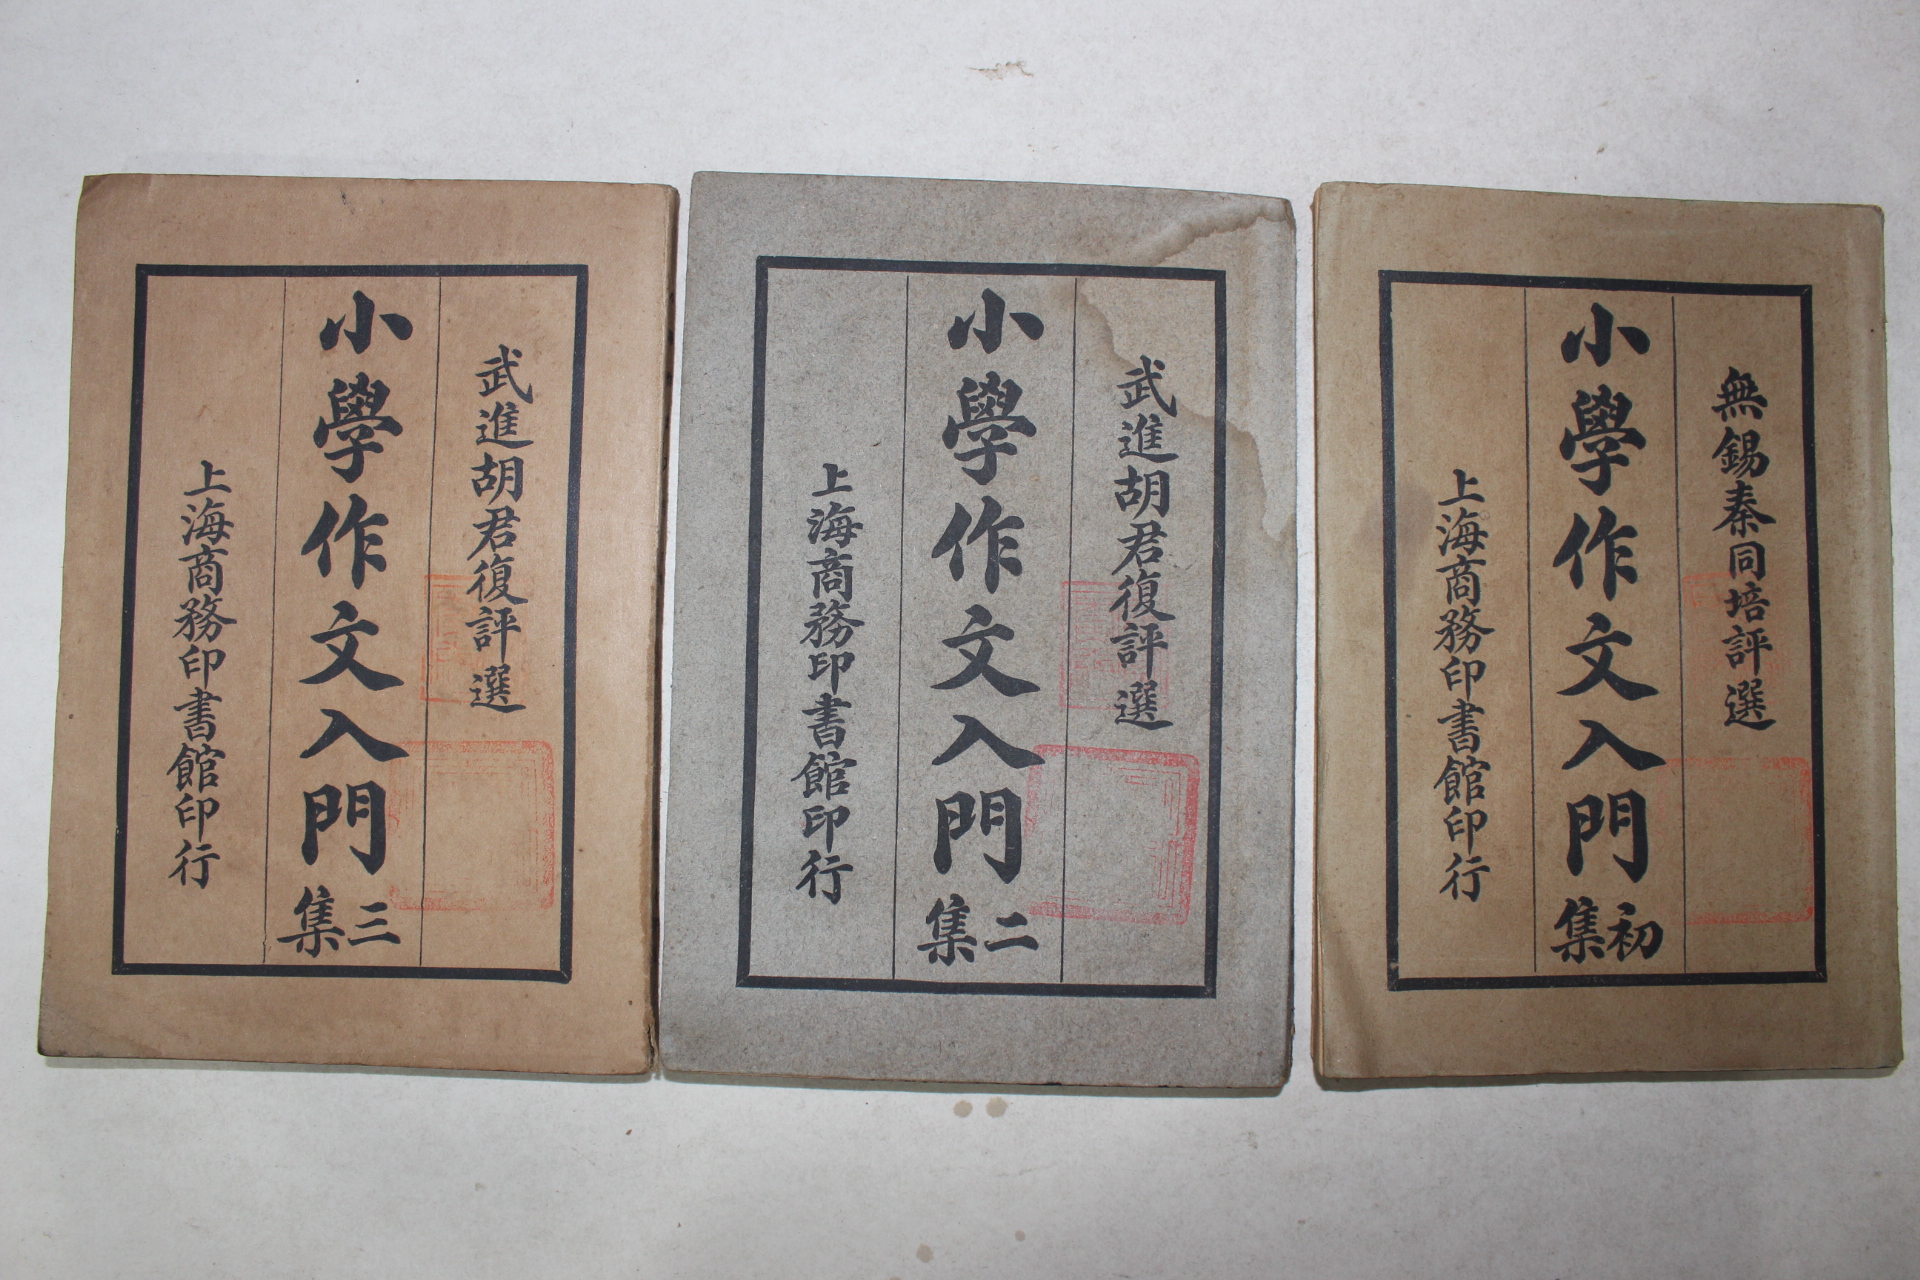 無錫秦同培評選
小學作文入門
初集
上海商務印書館印行
武進胡君復評選
小學作文入門
二集
上海商務印書館印行
武進胡君復評選
小學作文入門
三集
上海商務印書館印行